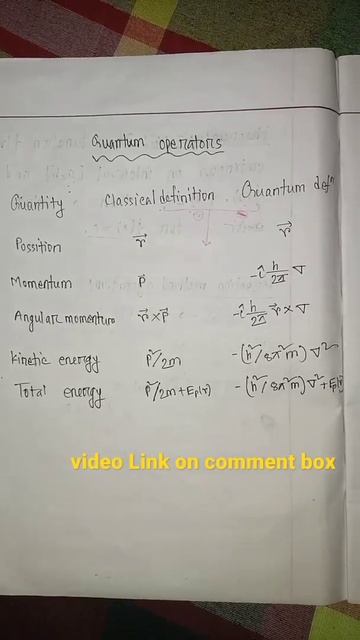 Quantum operators
Quantity : Classical definition Quantum defⁿ
Possition r⃗ r⃗
Momentum p⃗ -î h/2π ∇
Angular momentum r⃗ x p⃗ -î h/2π r⃗ x ∇
Kinetic energy p²/2m -(h²/8π²m) ∇²
Total energy p²/2m + Ep(r) -(h²/8π²m) ∇² + Ep(r)
video Link on comment box